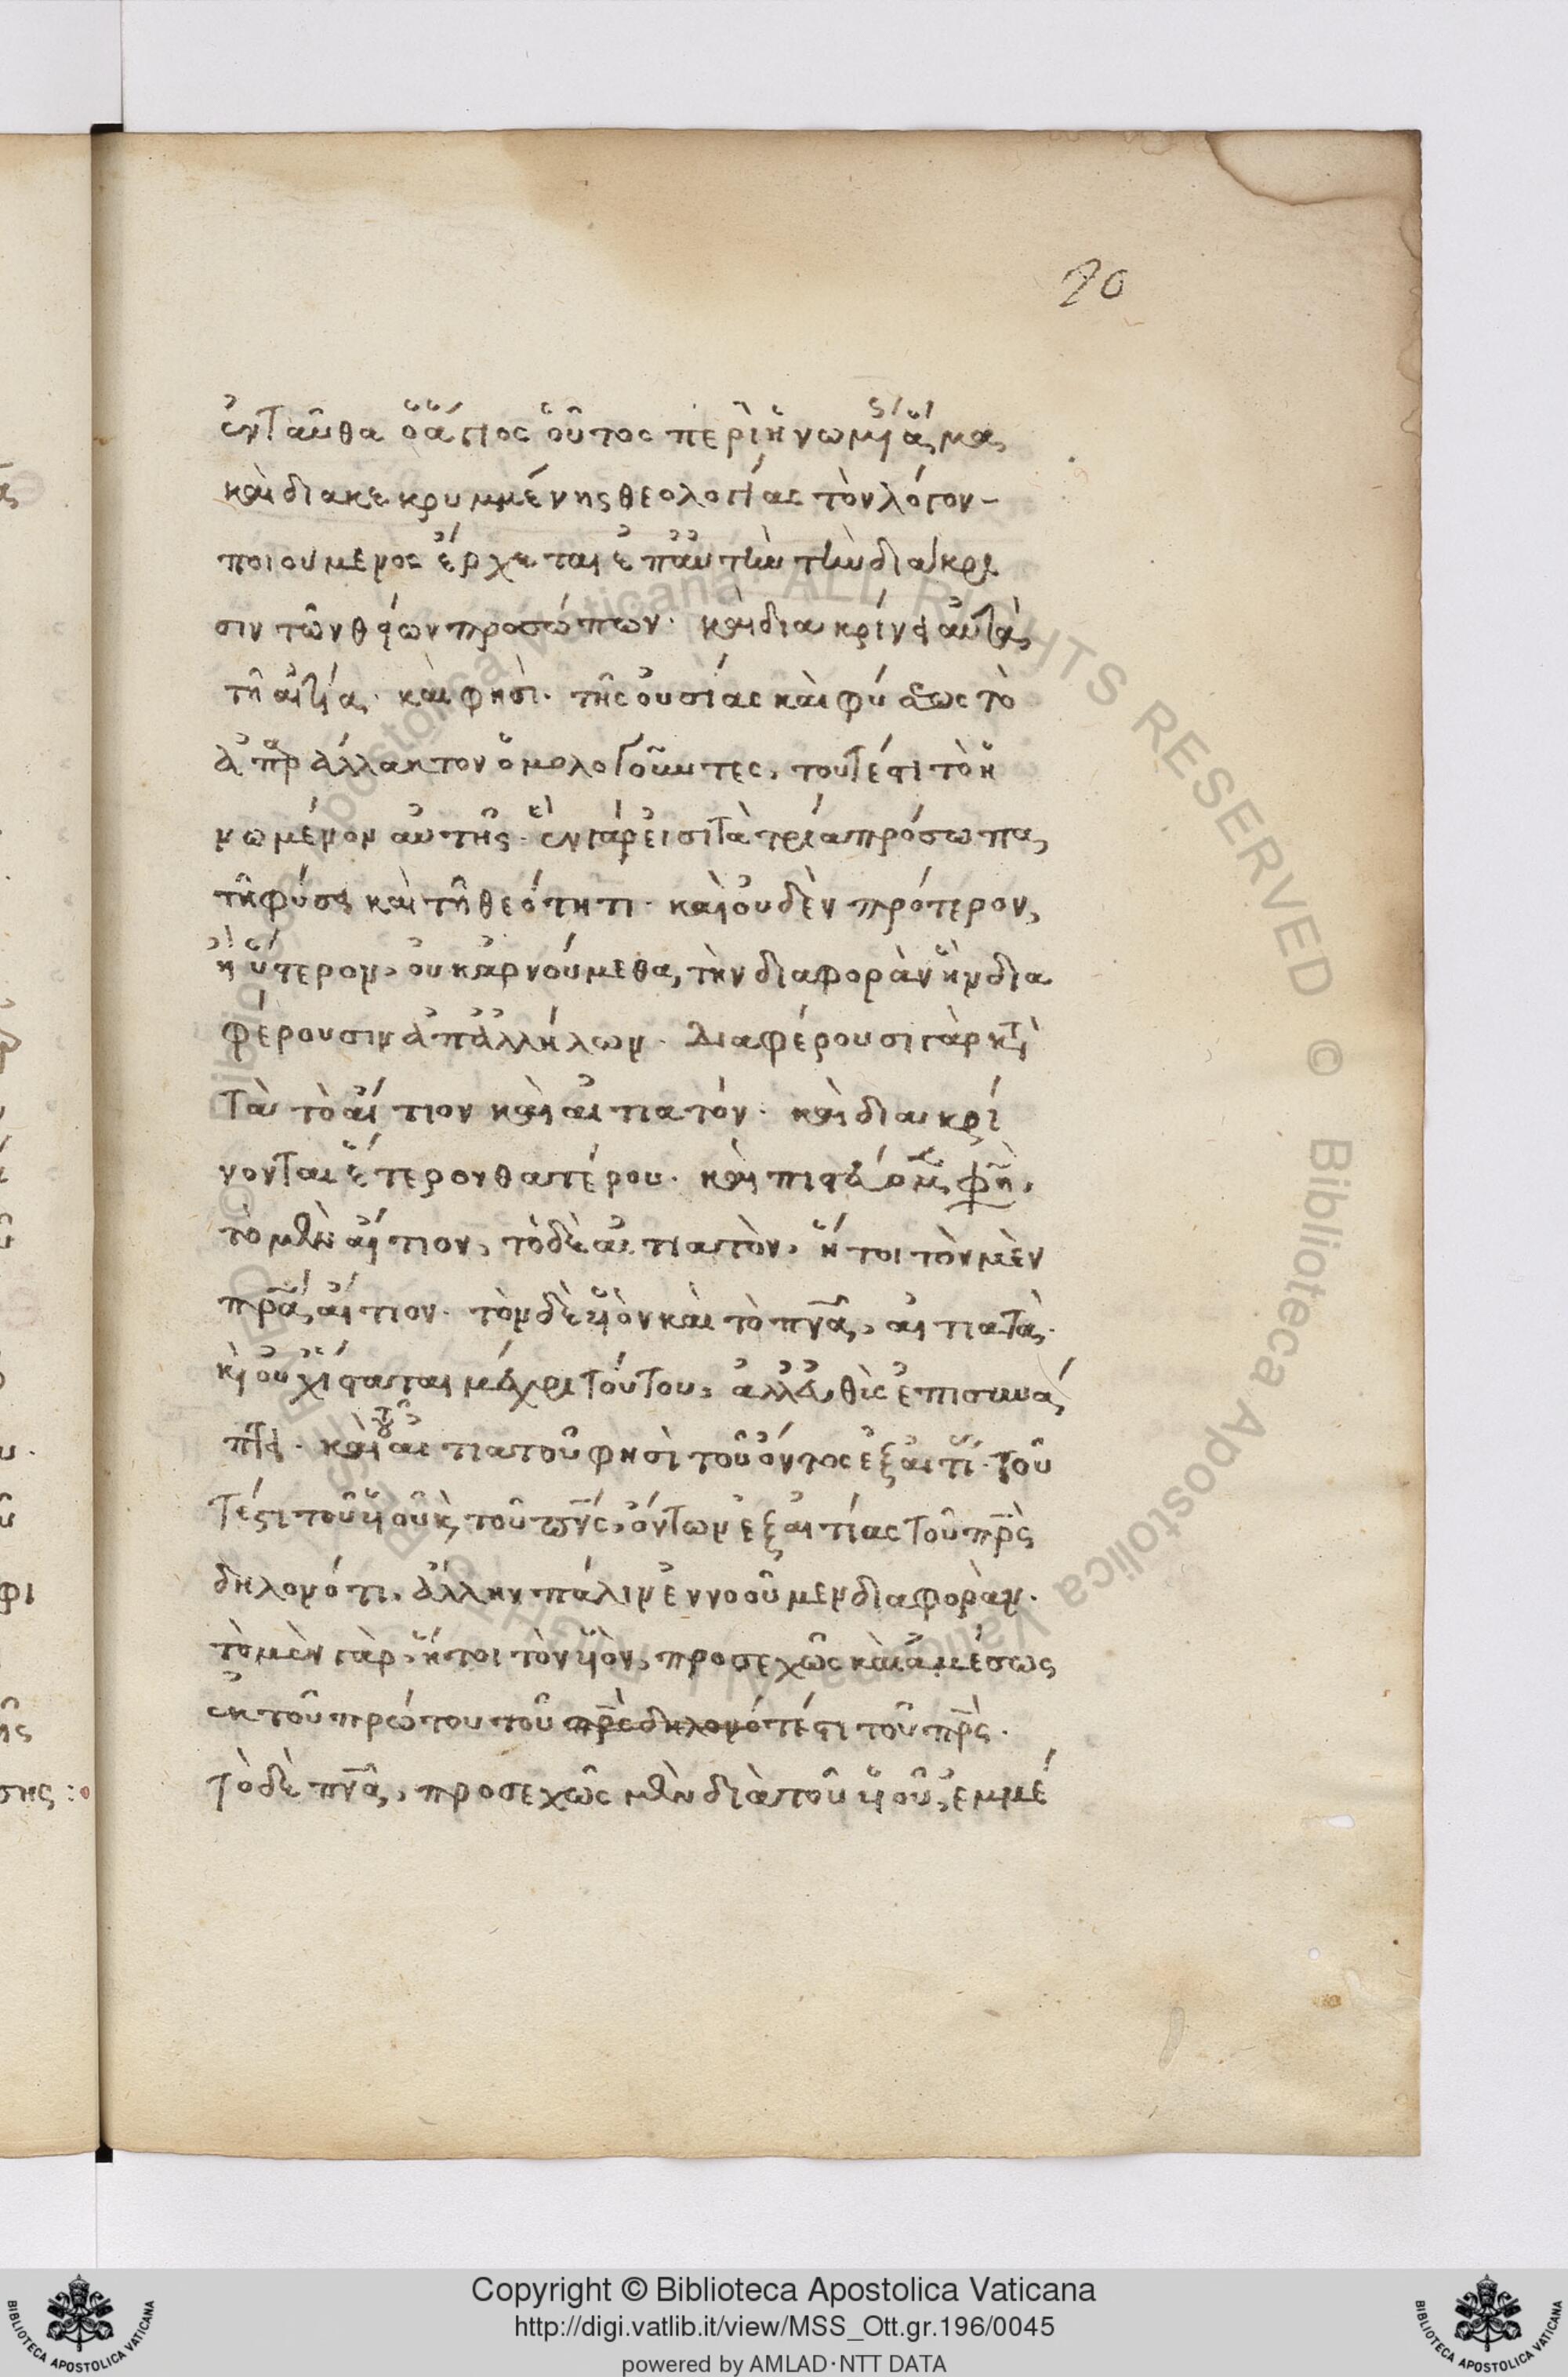 20
ἐνταῦθα ὁ ἅγιος οὗτος περὶ ἡνωμένης ἅμα
καὶ διακεκρυμμένης θεολογίας τὸν λόγον-
ποιούμενος ἔρχεται ἐπ' αὐτὴν τὴν διάκρι
σιν τῶν θείων προσώπων· καὶ διακρίνει αὐτὰ
τῇ αἰτία· καὶ φησὶ· τῆς οὐσίας καὶ φύσεως τὸ
ἀπαράλλακτον ὁμολογοῦντες, τουτέστι τὸ ἡ
νωμένον αὐτῆς· ἓν γάρ εἰσι τὰ τρία πρόσωπα,
τῆ φύσει καὶ τῆ θεότητι· καὶ οὐδὲν πρότερον,
ἢ ὕστερον, οὐκ ἀρνούμεθα, τὴν διαφορὰν ἣν δια
φέρουσιν ἀπ' ἀλλήλων· Διαφέρουσι γὰρ κατὰ
τὰ τὸ αἴτιον καὶ αἰτιατόν· καὶ διακρί
νονται ἕτερον θατέρου· καὶ πιστεύομεν φησὶ,
τὸ μὲν αἴτιον, τὸ δὲ αἰτιατὸν, ἤτοι τὸν μὲν
πρα, αἴτιον· τὸν δὲ υἱὸν καὶ τὸ πνα, αἰτιατὰ·
κὶ οὐχ ἵσταται μέχρι τούτου, ἀλλ' αὖθις ἐπισυνά
πτει· καὶ τοῦ αἰτιατοῦ φησὶ τοῦ ὄντος ἐξ αἰτί· του
τέστι τοῦ υἱοῦ κ τοῦ πνς, ὄντων ἐξ αἰτίας τοῦ πρς
δηλονότι, ἄλλην πάλιν ἐννοοῦμεν διαφοράν·
τὸ μὲν γὰρ, ἤτοι τὸν υἱὸν, προσεχῶς καὶ ἀμέσως
ἐκ τοῦ πρώτου τοῦ πρς δηλονότ έστι τοῦ πρς·
τὸ δὲ πνα, προσεχῶς μὲν διὰ τοῦ υἱοῦ, ἐμμέ
Copyright © Biblioteca Apostolica Vaticana
http://digi.vatlib.it/view/MSS_Ott.gr.196/0045
powered by AMLAD·NTT DATA
BIBLIOTECA APOSTOLICA VATICANA
BIBLIOTECA APOSTOLICA VATICANA